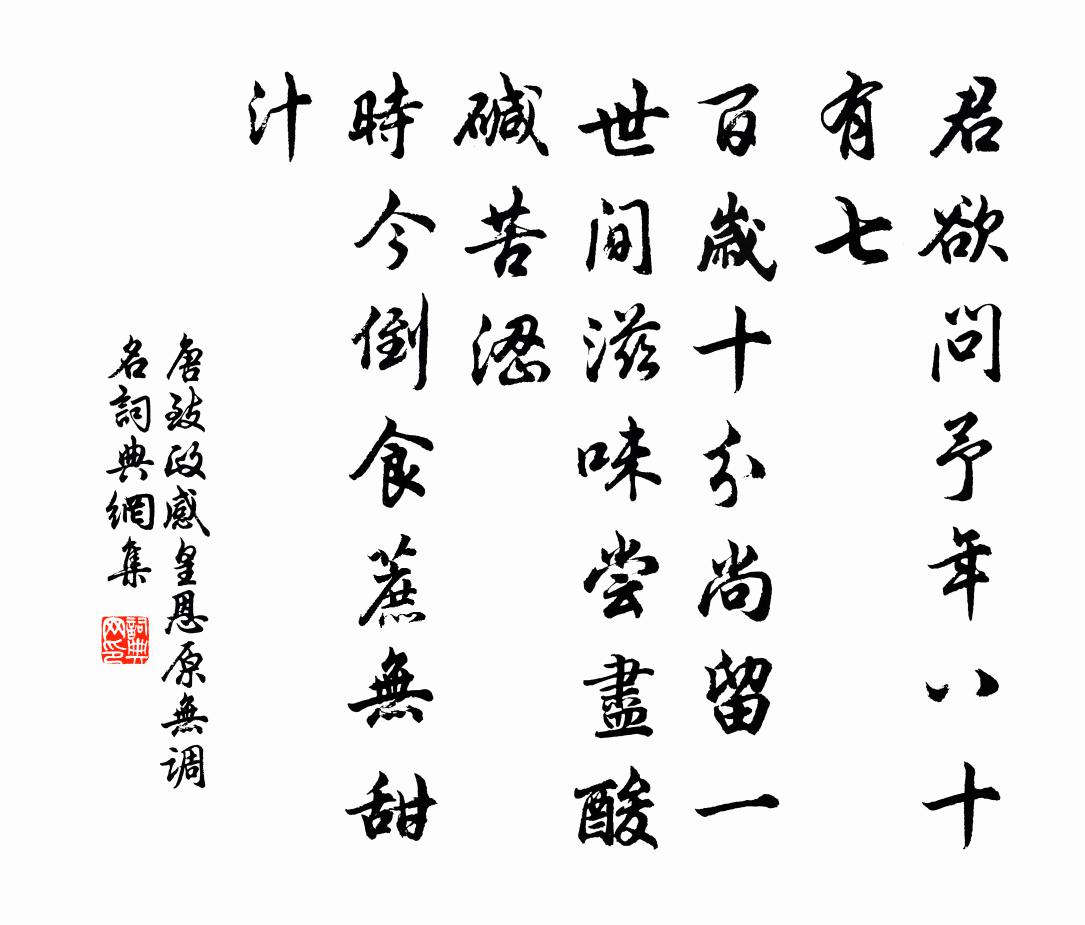 君欲問予年八十
有七
百歲十分尚留一
世間滋味嘗盡酸
碱苦澀
時今倒食蔗無甜
汁
唐致政感皇恩原無調
名詞典網集
詞典網印